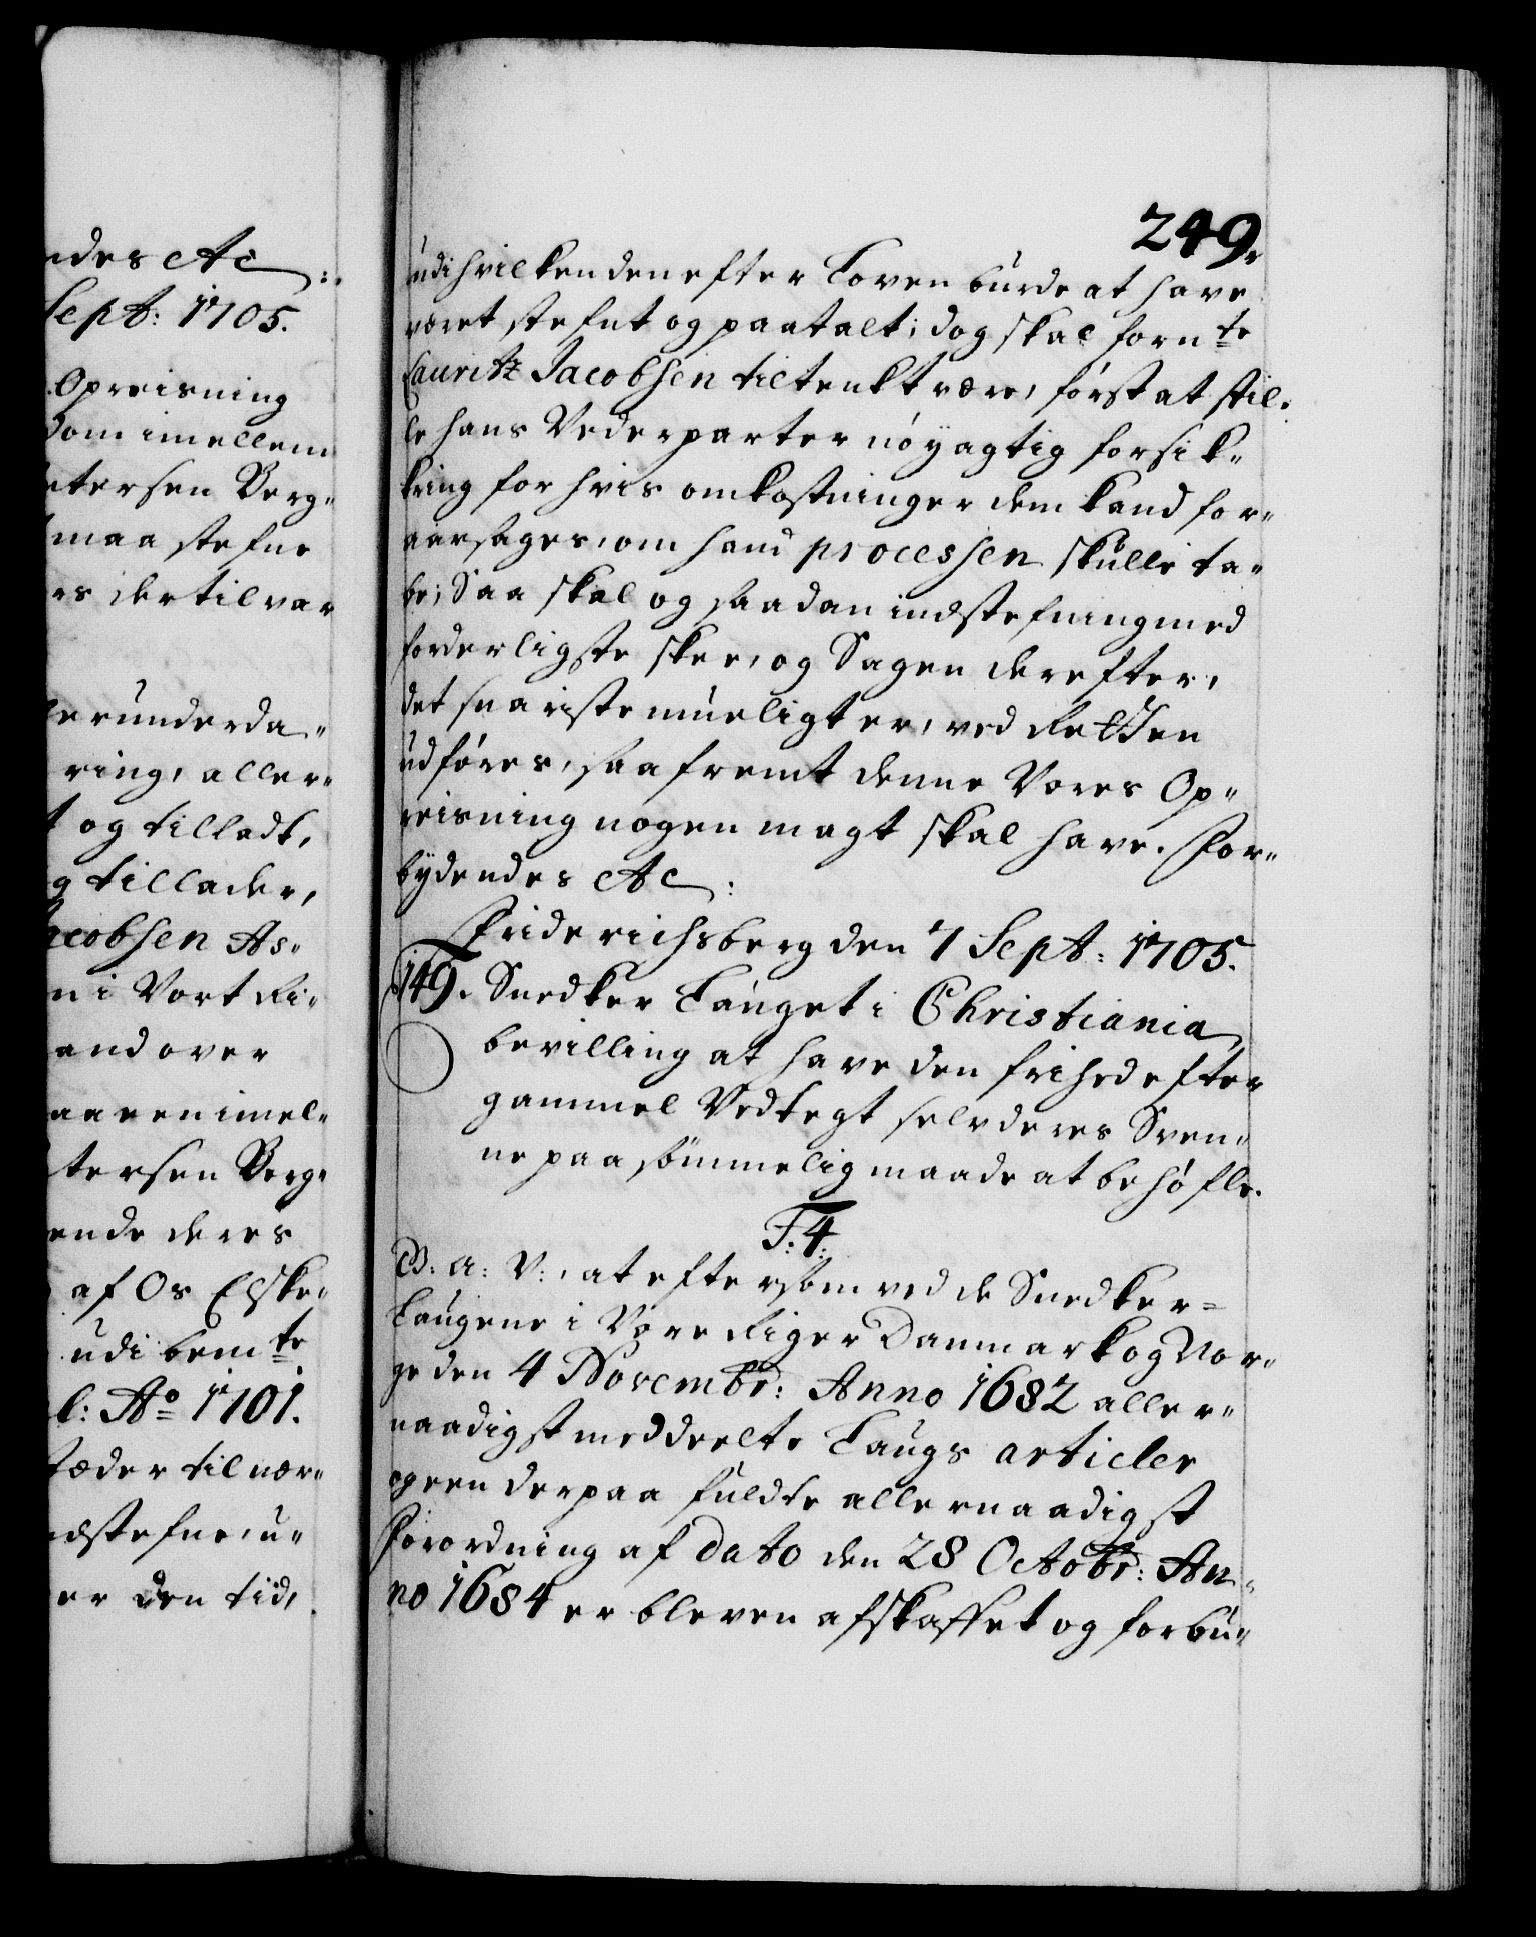 ndes etc:
Sept: 1705.
Opreisning
Dom imellem
etersen Berg„
maa stefne
rs dertil var
erunderda„
ring, aller„
t og tilladt,
g tillader,
acobsen As„
n i Vort Ri„
and over
aaeen imel„
tersen Berg„
ende deres
af Os Elske„
udi bemte
l: Ao 1701.
tæder til nær„
dstefne, u„
er den tid,
249.
udi hvilken den efter Loven burde at have
været stefnt og paatalt; dog skal fornte
Lauritz Jacobsen tiltenkt være, først at stil„
le hans Vederparter nöyagtig forsik„
kring for hvis omkostninger dem kand for„
aarsages, om hand processen skulle ta„
be; Saa skal og saadan indstefning med
forderligste skee, og Sagen derefter,
det snariste mueligt er, ved Retten
udføres, saafremt denne Vores Op„
reisning nogen magt skal have. For„
bydendes etc:
Friderichsberg den 7 Sept: 1705.
149. Snedker Lauget i Christiania
bevilling at have den frihed efter
gammel Vedtegt selv deres Sven„
ne paa sømmelig maade at behøfle.
F: 4.
G. A: V:, at eftersom ved de Snedker=
Laugene i Vore Riger Danmark og Nor„
ge den 4 Novembr: Anno 1682 aller„
naadigst meddeelte Laugs articler
og een derpaa fuldte allernaadigst
Forordning af dato den 28 Octobr: An„
no 1684 er bleven afskaffet og forbu„